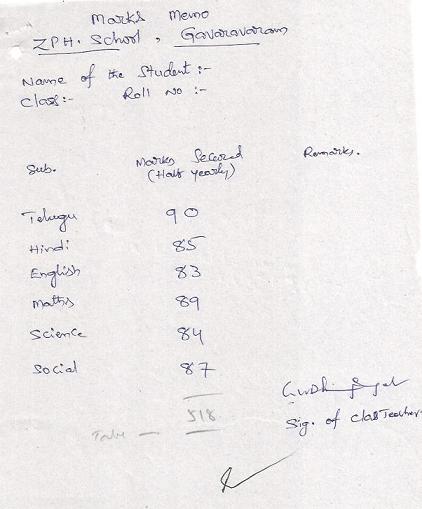 Marks Memo
ZPH. School, Gavaravaram
Name of the Student :-
Class:- Roll No :-
Sub. Marks Secured (Half yearly) Remarks.
Telugu 90
Hindi 85
English 83
Maths 89
Science 84
Social 87
518
Sig. of class Teacher